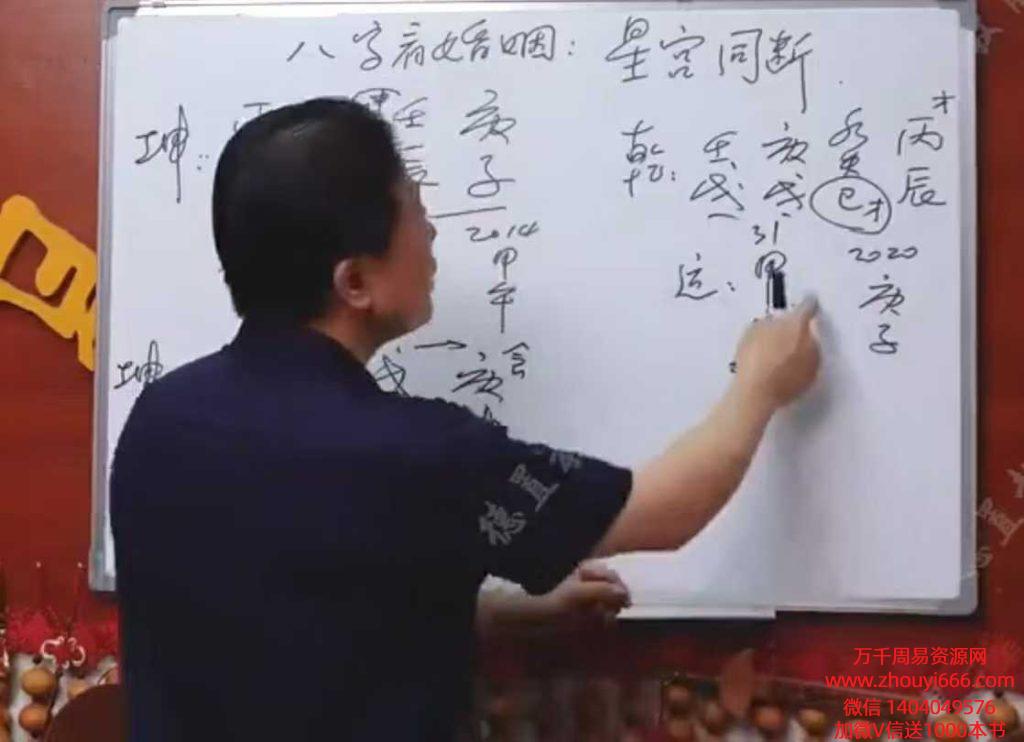 八字看婚姻：星宫同断
坤：
壬 庚
辰 子
2014
甲
午
坤
戌 → 庚 会
乾：
壬 庚 癸 丙 才
戌 戌 巳 才 辰
31
运： 甲
2020
庚
子
德置
万千周易资源网
www.zhouyi666.com
微信 1404049576
加微V信送1000本书